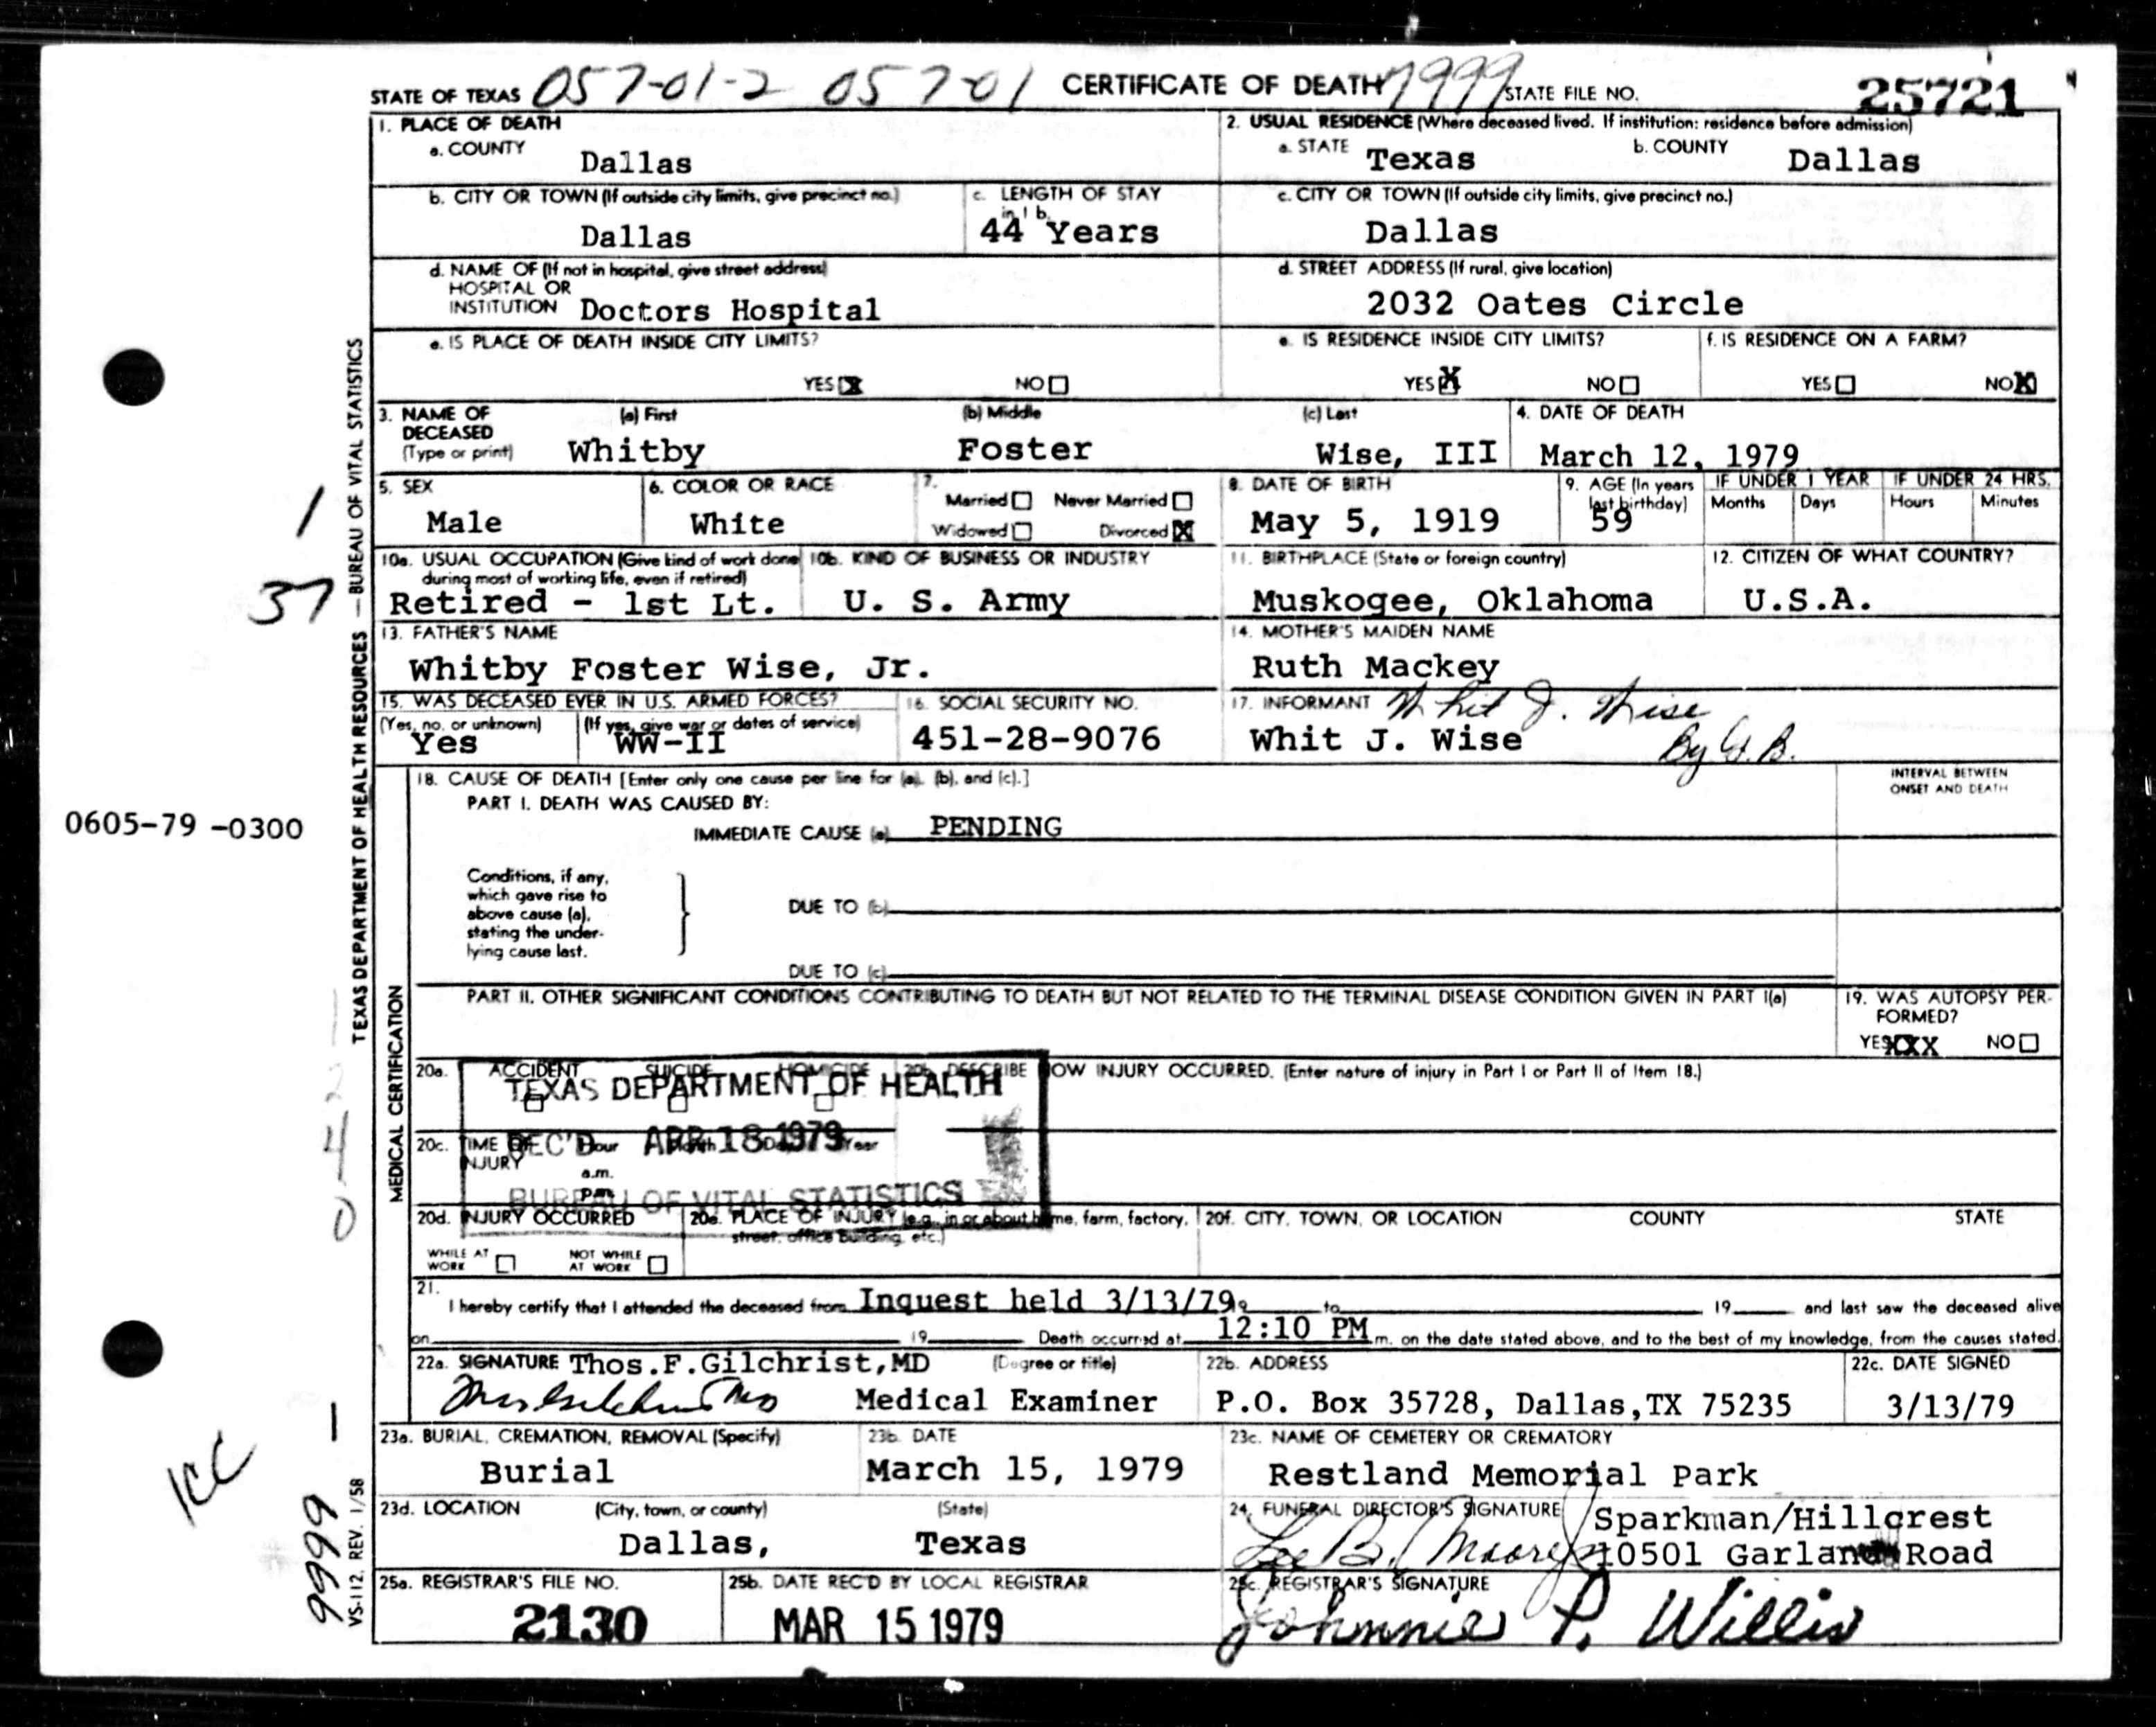 STATE OF TEXAS 057-01-2 057-01 CERTIFICATE OF DEATH 7999 STATE FILE NO. 25721
1. PLACE OF DEATH
a. COUNTY Dallas
2. USUAL RESIDENCE (Where deceased lived. If institution: residence before admission)
a. STATE Texas b. COUNTY Dallas
b. CITY OR TOWN (If outside city limits, give precinct no.) Dallas
c. LENGTH OF STAY in 1 b. 44 Years
c. CITY OR TOWN (If outside city limits, give precinct no.) Dallas
d. NAME OF (If not in hospital, give street address)
HOSPITAL OR
INSTITUTION Doctors Hospital
d. STREET ADDRESS (If rural, give location)
2032 Oates Circle
e. IS PLACE OF DEATH INSIDE CITY LIMITS?
YES X NO
e. IS RESIDENCE INSIDE CITY LIMITS?
YES X NO
f. IS RESIDENCE ON A FARM?
YES NO X
3. NAME OF DECEASED (Type or print)
(a) First Whitby (b) Middle Foster (c) Last Wise, III
4. DATE OF DEATH
March 12, 1979
5. SEX
Male
6. COLOR OR RACE
White
7. Married Never Married
Widowed Divorced X
8. DATE OF BIRTH
May 5, 1919
9. AGE (In years last birthday)
59
IF UNDER 1 YEAR IF UNDER 24 HRS.
Months Days Hours Minutes
10a. USUAL OCCUPATION (Give kind of work done
during most of working life, even if retired)
Retired - 1st Lt.
10b. KIND OF BUSINESS OR INDUSTRY
U. S. Army
11. BIRTHPLACE (State or foreign country)
Muskogee, Oklahoma
12. CITIZEN OF WHAT COUNTRY?
U.S.A.
13. FATHER'S NAME
Whitby Foster Wise, Jr.
14. MOTHER'S MAIDEN NAME
Ruth Mackey
15. WAS DECEASED EVER IN U.S. ARMED FORCES?
(Yes, no, or unknown) (If yes, give war or dates of service)
Yes WW-II
16. SOCIAL SECURITY NO.
451-28-9076
17. INFORMANT Whit J. Wise
Whit J. Wise By G.B.
18. CAUSE OF DEATH [Enter only one cause per line for (a), (b), and (c).]
INTERVAL BETWEEN
ONSET AND DEATH
PART I. DEATH WAS CAUSED BY:
IMMEDIATE CAUSE (a) PENDING
Conditions, if any,
which gave rise to
above cause (a),
stating the under-
lying cause last.
DUE TO (b)
DUE TO (c)
PART II. OTHER SIGNIFICANT CONDITIONS CONTRIBUTING TO DEATH BUT NOT RELATED TO THE TERMINAL DISEASE CONDITION GIVEN IN PART I(a)
19. WAS AUTOPSY PER-
FORMED?
YES XXX NO
20a. ACCIDENT SUICIDE HOMICIDE 20b. DESCRIBE HOW INJURY OCCURRED. (Enter nature of injury in Part I or Part II of Item 18.)
TEXAS DEPARTMENT OF HEALTH
REC'D APR 18 1979
BUREAU OF VITAL STATISTICS
20c. TIME OF INJURY Hour Month Day Year
a.m.
p.m.
20d. INJURY OCCURRED
WHILE AT WORK NOT WHILE AT WORK
20e. PLACE OF INJURY (e.g., in or about home, farm, factory,
street, office building, etc.)
20f. CITY, TOWN, OR LOCATION COUNTY STATE
21. I hereby certify that I attended the deceased from Inquest held 3/13/79 19 to 19 and last saw the deceased alive
on 19 Death occurred at 12:10 PM m. on the date stated above, and to the best of my knowledge, from the causes stated.
22a. SIGNATURE Thos.F.Gilchrist,MD (Degree or title)
Medical Examiner
22b. ADDRESS
P.O. Box 35728, Dallas,TX 75235
22c. DATE SIGNED
3/13/79
23a. BURIAL, CREMATION, REMOVAL (Specify)
Burial
23b. DATE
March 15, 1979
23c. NAME OF CEMETERY OR CREMATORY
Restland Memorial Park
23d. LOCATION (City, town, or county) (State)
Dallas, Texas
24. FUNERAL DIRECTOR'S SIGNATURE Sparkman/Hillcrest
Lee B. Moore 10501 Garland Road
25a. REGISTRAR'S FILE NO.
2130
25b. DATE REC'D BY LOCAL REGISTRAR
MAR 15 1979
25c. REGISTRAR'S SIGNATURE
Johnnie P. Willis
TEXAS DEPARTMENT OF HEALTH RESOURCES — BUREAU OF VITAL STATISTICS
MEDICAL CERTIFICATION
VS-112, REV. 1/58
1
37
0605-79 -0300
0-42-
9999 -